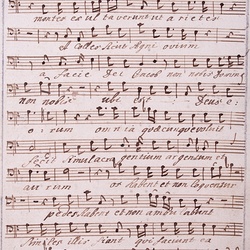 montes exultaverunt ut arietes
et colles sicut Agni ovium
a facie Dei Jacob non nobis Domine
non nobis ubi est Deus e:
orum omnia quæcunque voluit
fecit Simulacra gentium argentum et
aurum os habent et non loquentur
pedes habent et non ambulabunt
Similes illis fiant qui faciunt